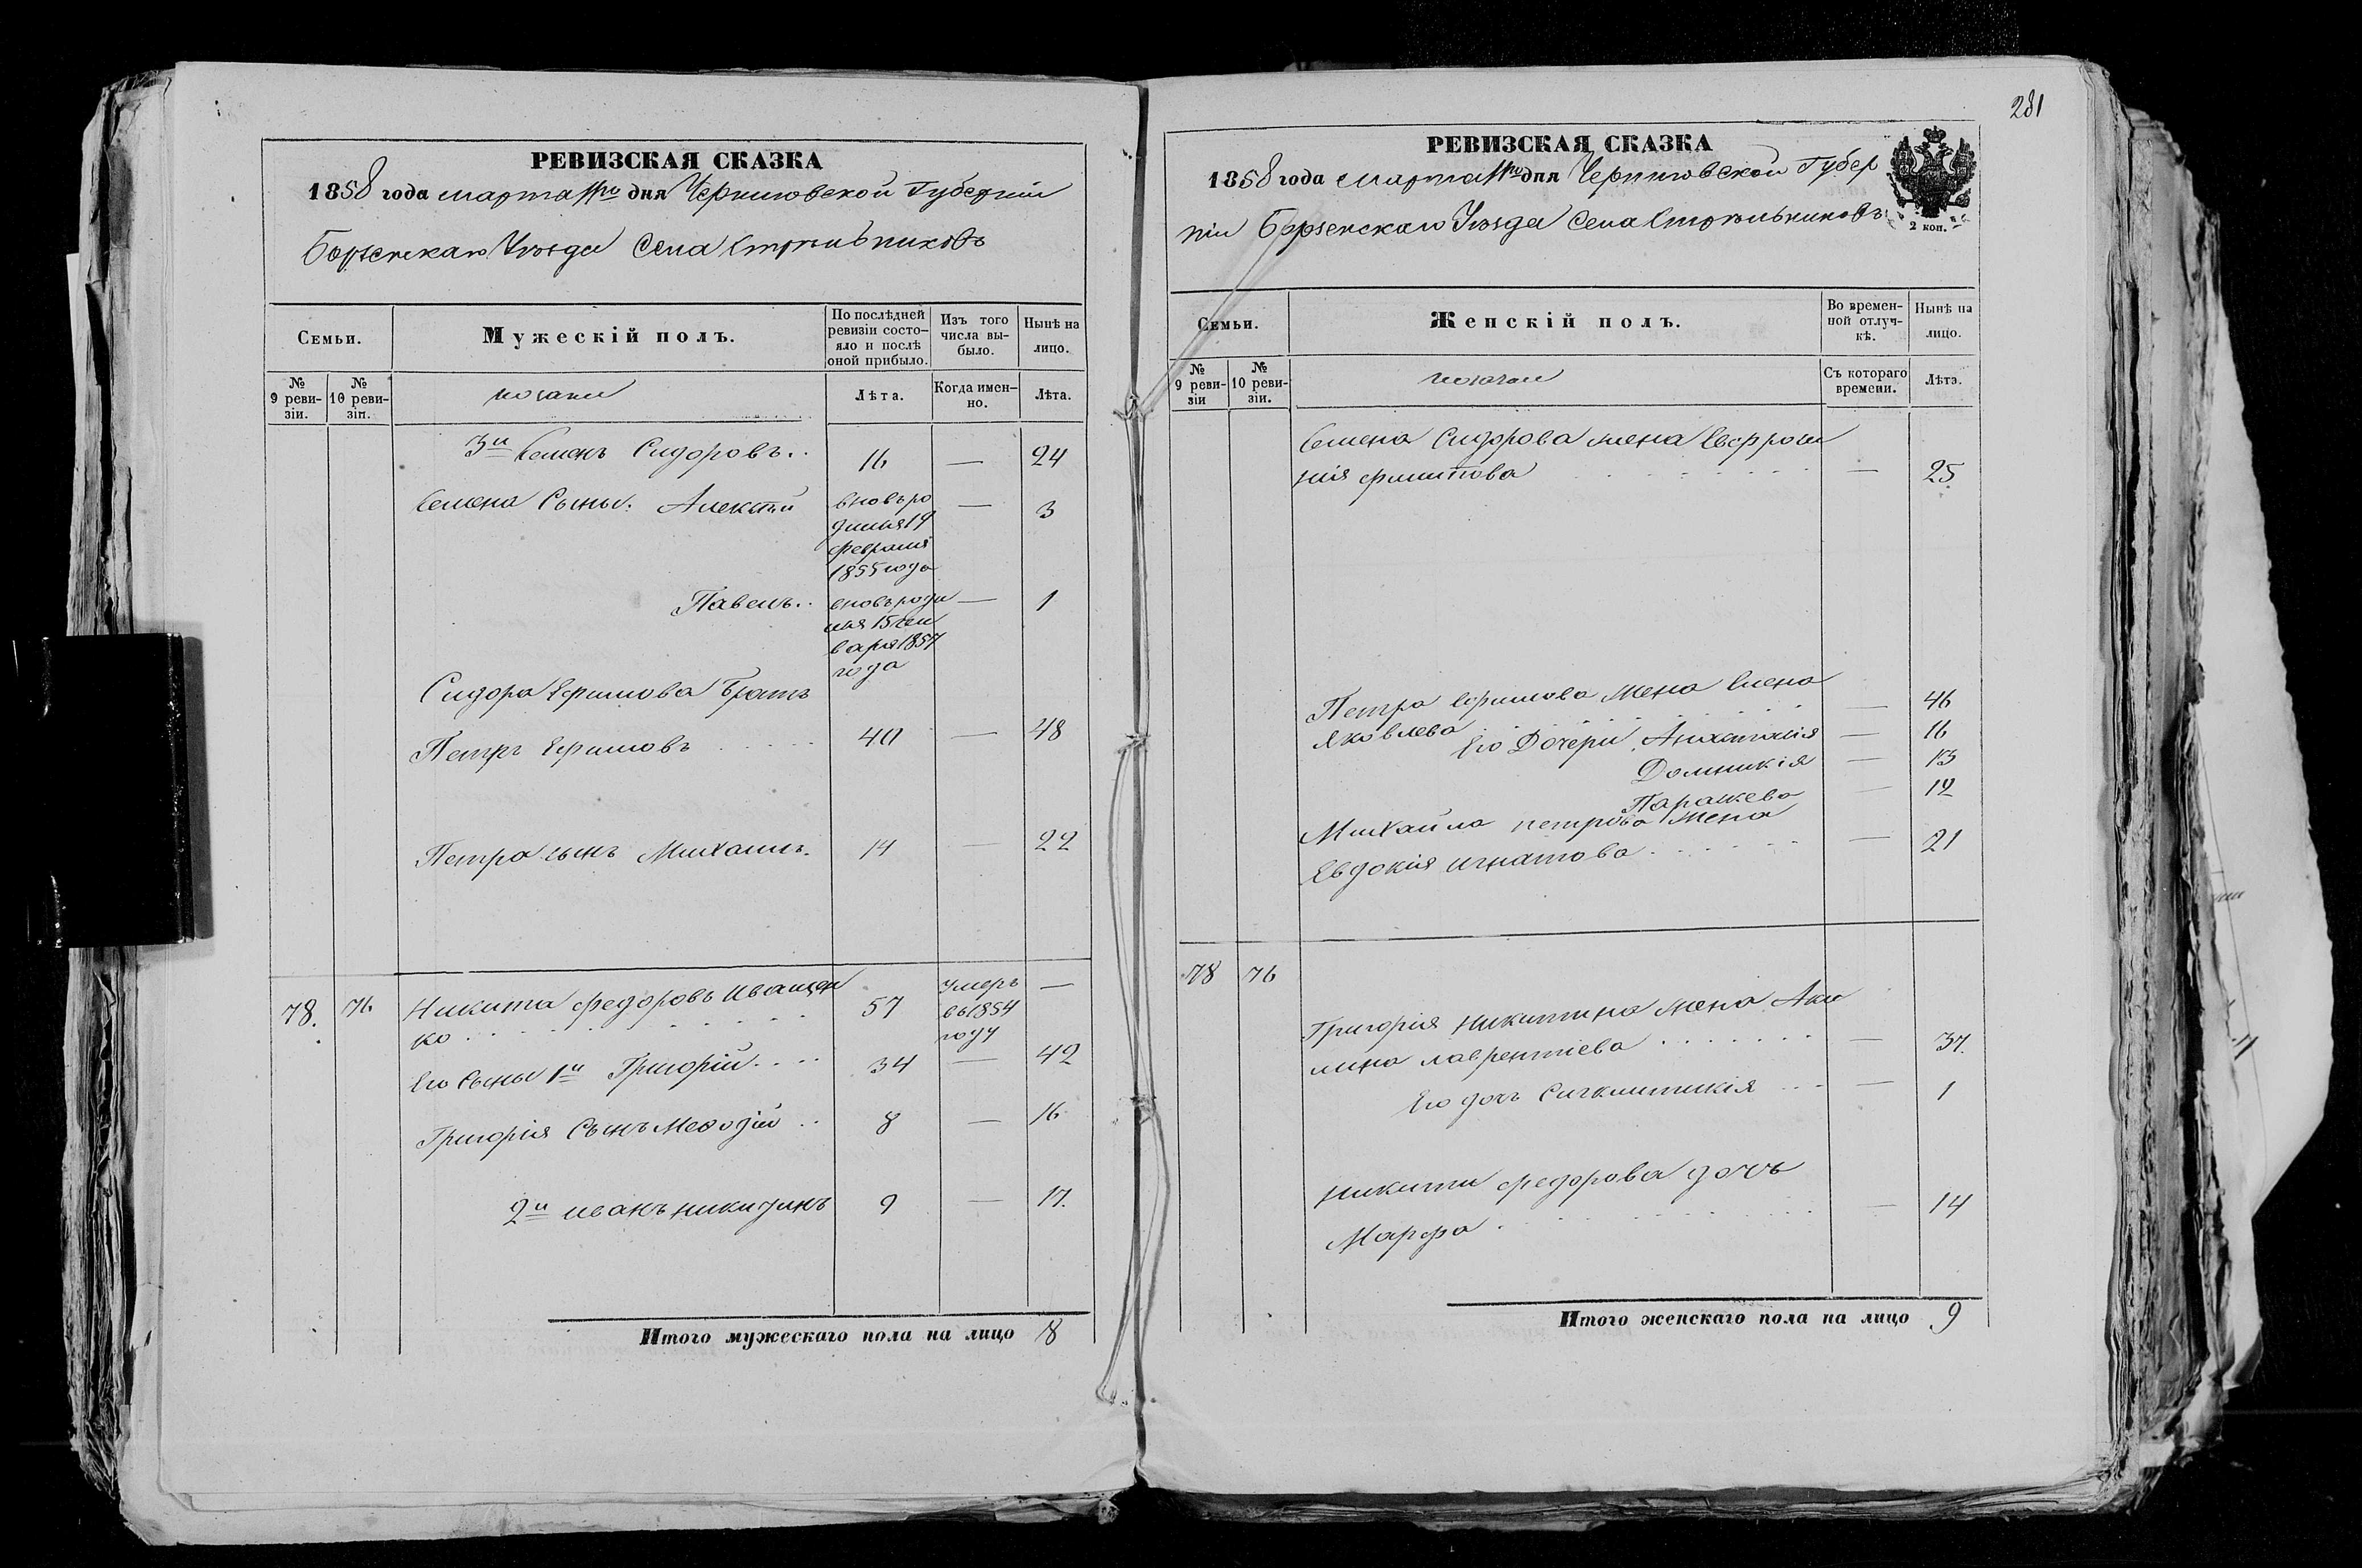 281
РЕВИЗСКАЯ СКАЗКА
1858 года марта 11го дня Черниговской Губерніи
Борзенскаго Уѣзда Села
Семьи.
Мужескій полъ.
По послѣдней ревизіи состо-
яло и послѣ
оной прибыло.
Изъ того
числа вы-
было.
Нынѣ на
лицо.
№
9 реви-
зіи.
№
10 реви-
зіи.
козаки
Лѣта.
Когда имен-
но.
Лѣта.
3й Семенъ Сидоровъ.. 16 — 24
Семена Сыны. Алексѣй вновь ро — 3
19
февраля
1855 года
Павелъ.. вновь роди — 1
15 Ген
варя 1857
года
Сидора Ефимова Братъ
Петръ Ефимовъ 40 — 48
Петра сынъ Михаилъ. 14 — 22
78. 76 Никита Федоровъ Иващен 57 умеръ —
ко въ 1854
году
Его Сыны 1й Григорій 34 — 42
Григорія Сынъ Меѳодій .. 8 — 16
2й иванъ никитинъ 9 — 17.
Итого мужескаго пола на лицо 8
РЕВИЗСКАЯ СКАЗКА
1858 года марта 11го дня Черниговской Губер
ніи Борзенскаго Уѣзда Села
2 коп.
Семьи.
Женскій полъ.
Во времен-
ной отлуч-
кѣ.
Нынѣ на
лицо.
№
9 реви-
зіи
№
10 реви-
зіи.
Съ котораго
времени.
Лѣтэ.
Семена Сидорова жена Евфроси
нія филипова — 25
Петра Ефимова жена Елена — 46
Яковлева
Его Дочери Анастасія — 16
Домникія — 13
Параскева — 12
Михайла петрова жена
Евдокія игнатова — 21
78 76
Григорія никитина жена Аку
лина лаврентіева — 37.
Его дочь Сигклитикія — 1
никиты федорова дочь
Марфа — 14
Итого женскаго пола на лицо 9